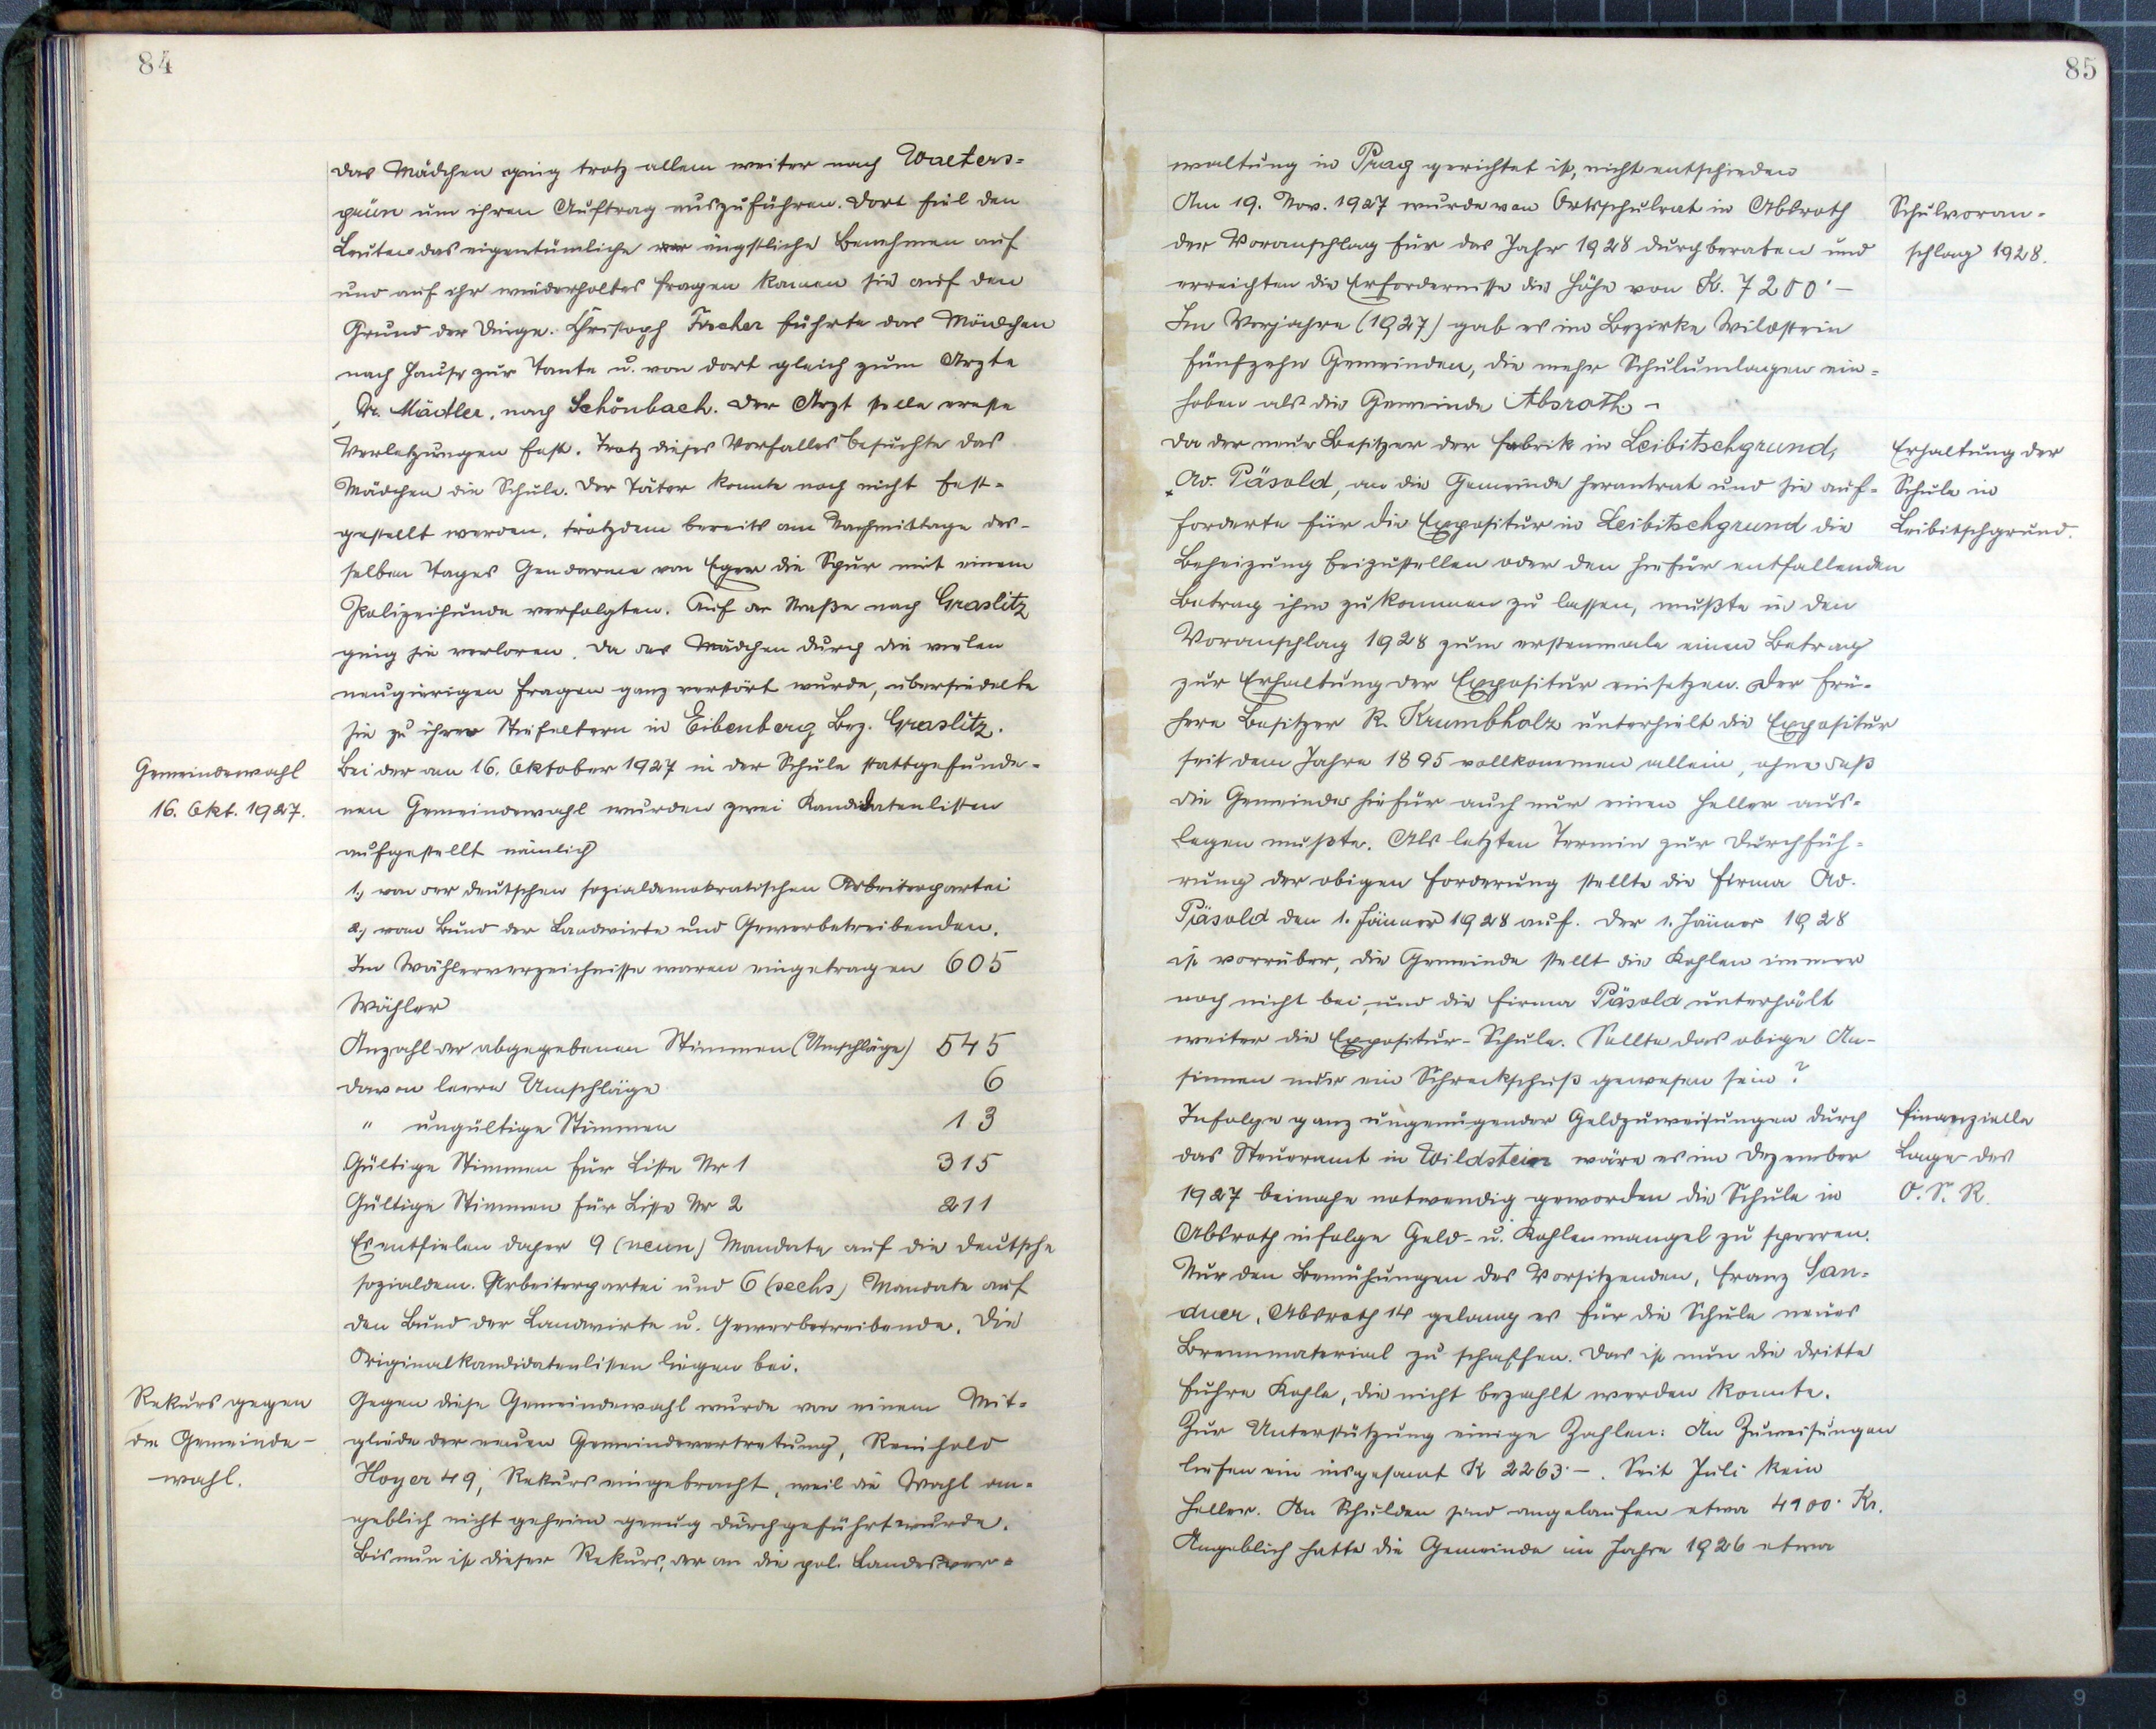 84
das Mädchen ging trotz allem weiter nach Walters-
grün um ihren Auftrag auszuführen. Dort fiel den
Leuten das eigentümliche ängstliche Benehmen auf
und auf ihr wiederholtes Fragen kamen sie auf den
Grund der Dinge. Christoph Fischer führte das Mädchen
nach Hause zur Tante u. von dort gleich zum Arzte
Dr. Mädler, nach Schönbach. Der Arzt stelle ernste
Verletzungen fest. Trotz dieses Vorfalles besuchte das
Mädchen die Schule. Der Täter konnte noch nicht fest-
gestellt werden, trotzdem bereits am Nachmittage des-
selben Tages Gendarme von Eger die Spur mit einem
Polizeihunde verfolgten. Auf der Straße nach Graslitz
ging sie verloren. Da das Mädchen durch die vielen
neugierigen Fragen ganz verstört wurde, übersiedelte
sie zu ihren Stiefeltern in Eibenberg Bez. Graslitz.
Gemeindewahl
16. Okt. 1927.
Bei der am 16. Oktober 1927 in der Schule stattgefunde-
nen Gemeindewahl wurden zwei Kandidatenlisten
aufgestellt nämlich
1.) von der deutschen sozialdemokratischen Arbeiterpartei
2.) vom Bund der Landwirte und Gewerbetreibenden.
Im Wählerverzeichnisse waren eingetragen 605
Wähler
Anzahl der abgegebenen Stimmen (Umschläge) 545
davon leere Umschläge 6
" ungültige Stimmen 13
Gültige Stimmen für Liste Nr 1 315
Gültige Stimmen für Liste Nr 2 211
Es entfielen daher 9 (neun) Mandate auf die deutsche
sozialdem. Arbeiterpartei und 6 (sechs) Mandate auf
den Bund der Landwirte u. Gewerbetreibende. Die
Originalkandidatenlisten liegen bei.
Rekurs gegen
die Gemeinde-
wahl.
Gegen diese Gemeindewahl wurde von einem Mit-
gliede der neuen Gemeindevertretung, Reinhold
Hoyer 49, Rekurs eingebracht, weil die Wahl an-
geblich nicht geheim genug durchgeführt wurde.
Bis nun ist dieser Rekurs, der an die pol. Landesver-
85
waltung in Prag gerichtet ist, nicht entschieden
Am 19. Nov. 1927 wurde von Ortsschulrat in Absroth
der Voranschlag für das Jahr 1928 durchberaten und
erreichten die Erfordernisse die Höhe von K. 7200·–
Schulvoran-
schlag 1928.
Im Vorjahre (1927) gab es im Bezirke Wildstein
fünfzehn Gemeinden, die mehr Schulumlagen ein-
hoben als die Gemeinde Absroth. –
Da der neue Besitzer der Fabrik in Leibitschgrund,
Ad. Päsold, an die Gemeinde herantrat und sie auf-
forderte für die Expositur in Leibitschgrund die
Erhaltung der
Schule in
Leibitschgrund.
Beheizung beizustellen oder den hiefür entfallenden
Betrag ihm zukommen zu lassen, mußte in den
Voranschlag 1928 zum erstenmale einen Betrag
zur Erhaltung der Expositur einsetzen. Der frü-
here Besitzer R. Krumbholz unterhielt die Expositur
seit dem Jahre 1895 vollkommen allein, ohne daß
die Gemeinde hiefür auch nur einen Heller aus-
legen mußte. Als letzten Termin zur Durchfüh-
rung der obigen Forderung stellte die Firma Ad.
Päsold den 1. Jänner 1928 auf. Der 1. Jänner 1928
ist vorrüber, die Gemeinde stellt die Kohlen immer
noch nicht bei, und die Firma Päsold unterhält
weiter die Expositur-Schule. Sollte das obige An-
sinnen nur ein Schreckschuß gewesen sein?
Infolge ganz ungenügender Geldzuweisungen durch
das Steueramt in Wildstein wäre es im Dezember
1927 beinahe notwendig geworden die Schule in
Finanzielle
Lage des
O. S. R.
Absroth infolge Geld- u. Kohlenmangel zu sperren.
Nur den Bemühungen des Vorsitzenden, Franz San-
dner, Absroth 14 gelang es für die Schule neues
Brennmaterial zu schaffen. Das ist nun die dritte
Fuhre Kohle, die nicht bezahlt werden konnte.
Zur Unterstützung einige Zahlen: An Zuweisungen
liefen ein insgesamt K 2263·–. Seit Juli kein
Heller. An Schulden sind angelaufen etwa 4100· Kr.
Angeblich hatte die Gemeinde im Jahre 1926 etwa